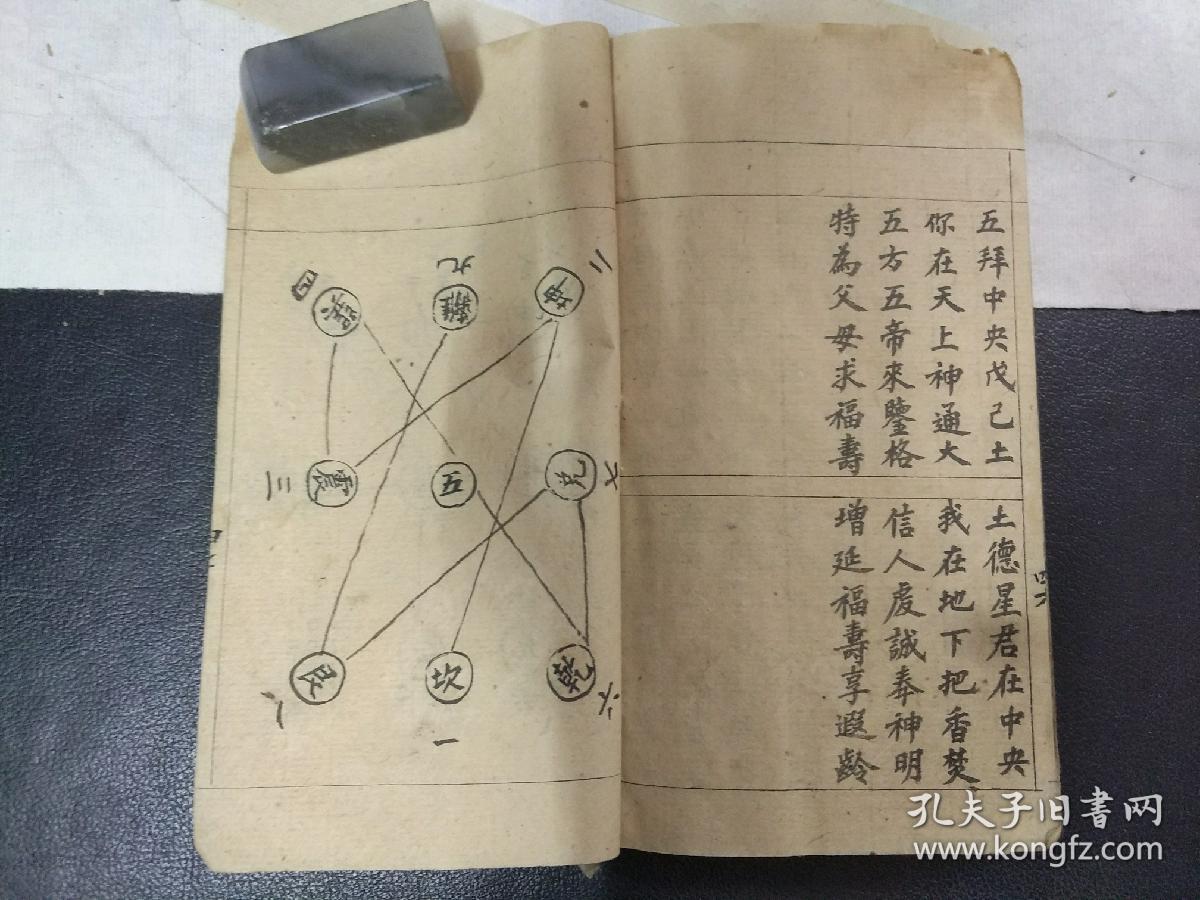 五拜中央戊己土
土德星君在中央
你在天上神通大
我在地下把香焚
五方五帝來鑒格
信人虔誠奉神明
特為父母求福壽
增延福壽享遐齡
四
巽
九
離
二
坤
三
震
五
兌
七
八
艮
坎
一
乾
六
孔夫子旧书网
www.kongfz.com